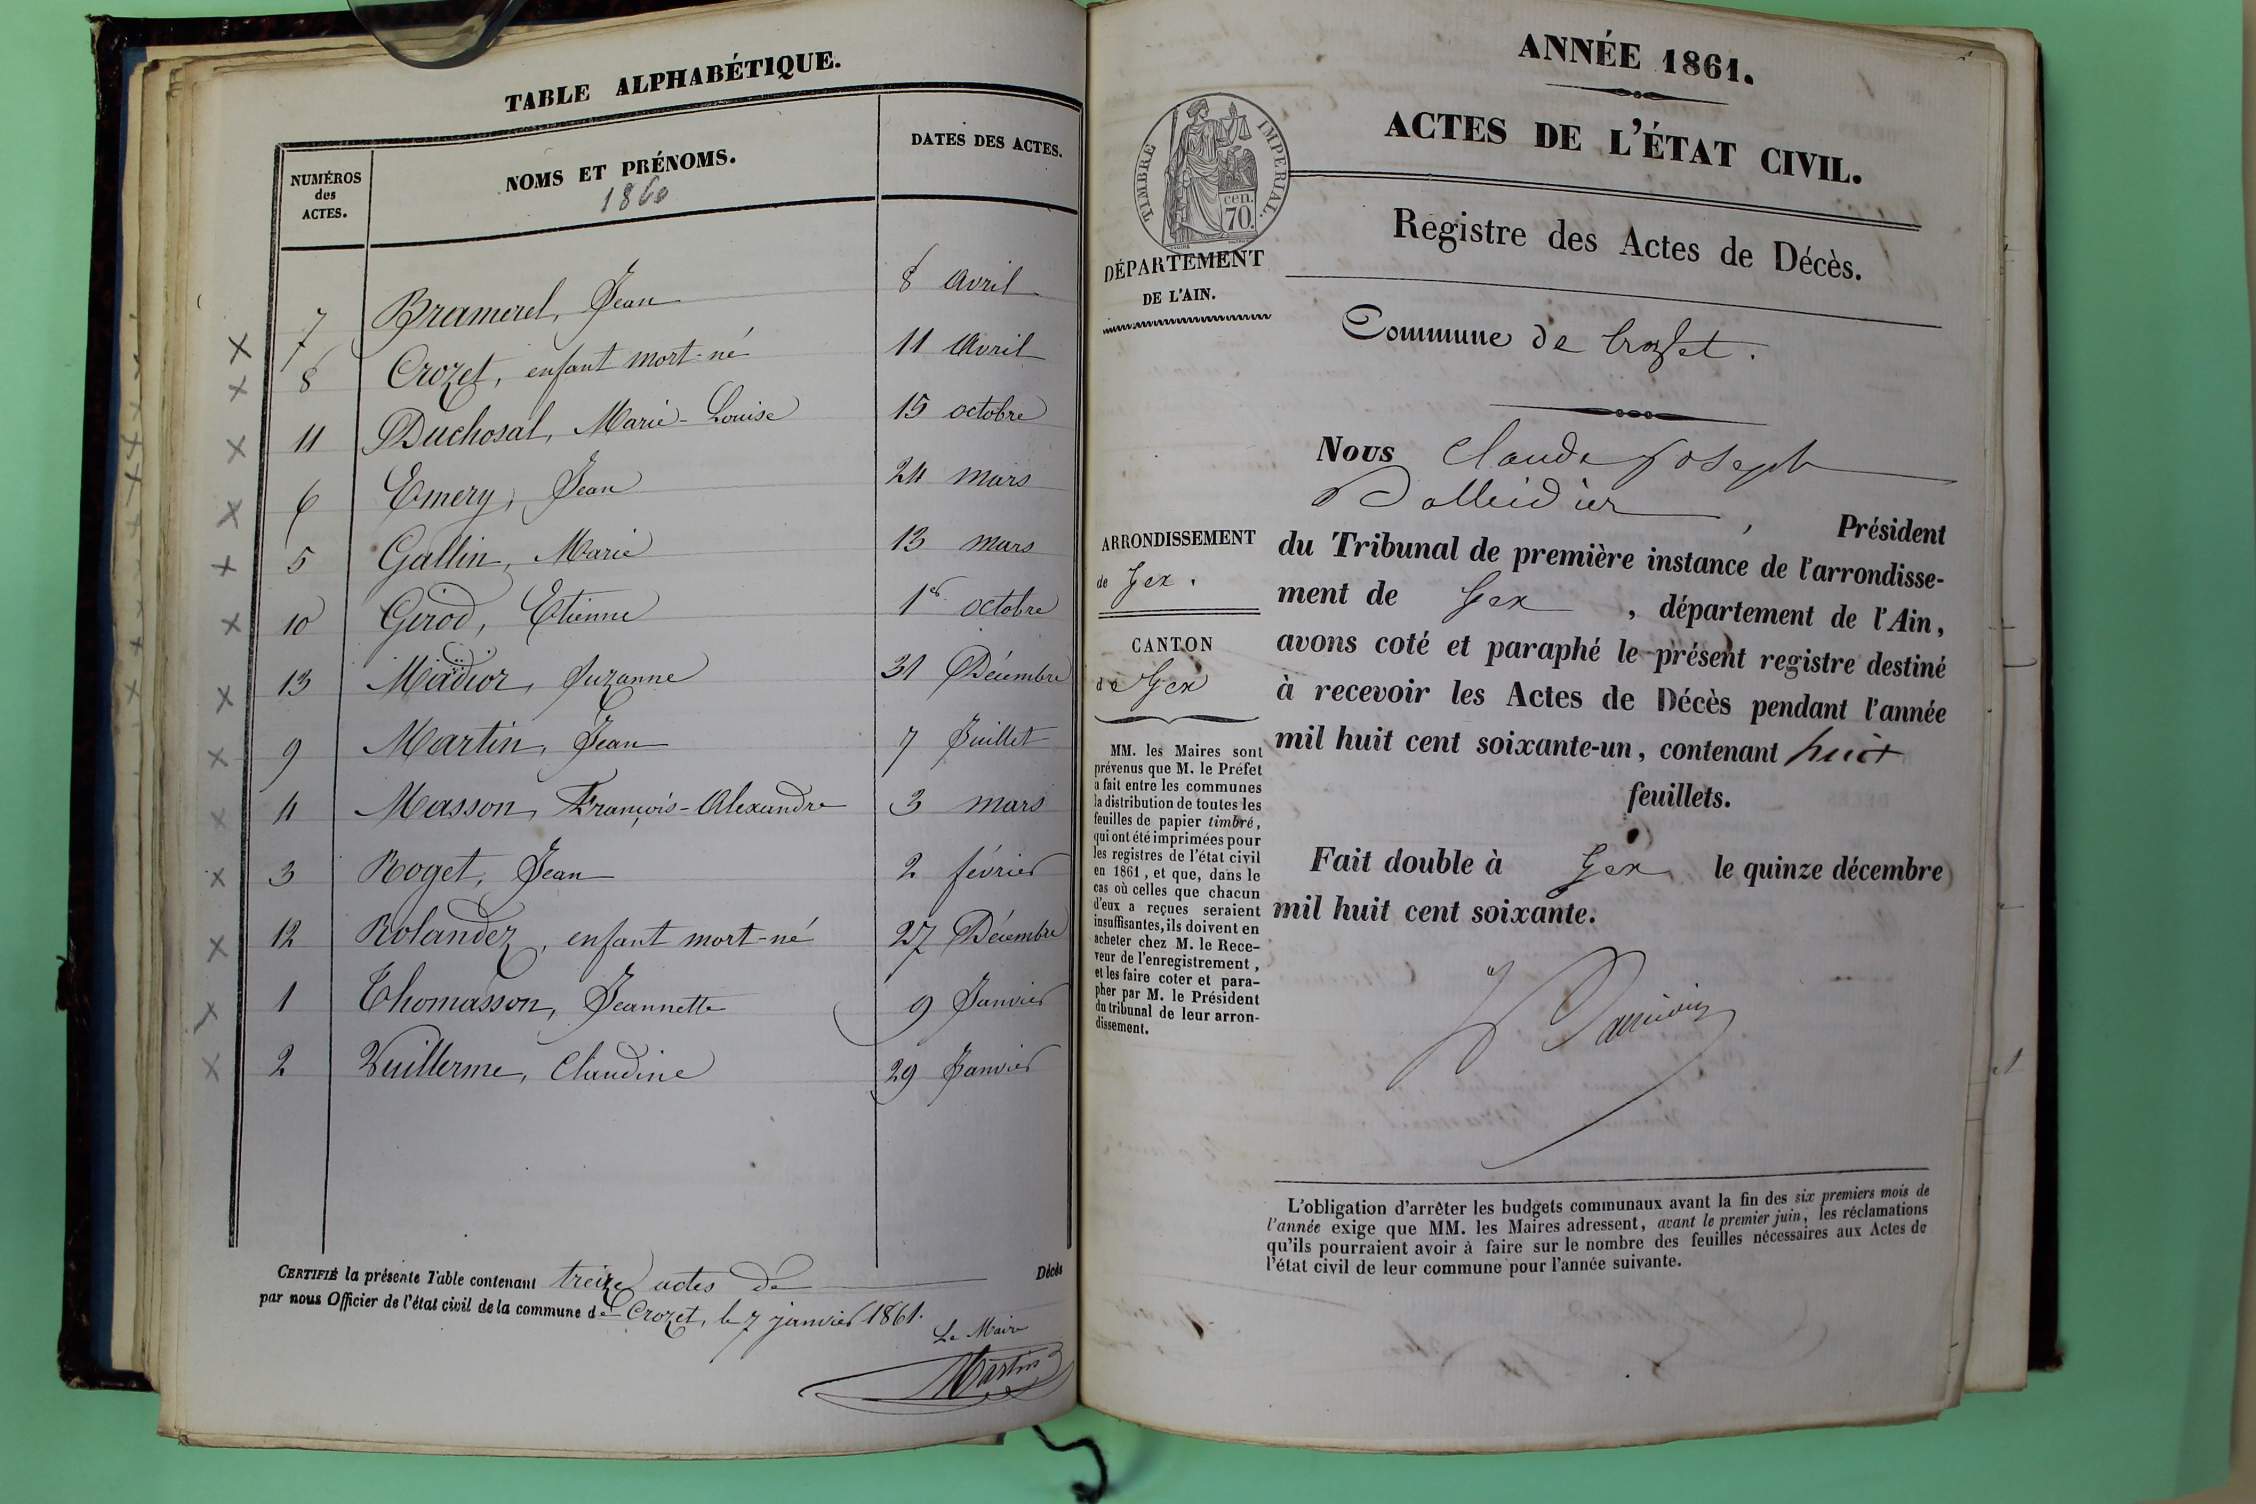 TABLE ALPHABÉTIQUE.
NUMÉROS
des
ACTES.
NOMS ET PRÉNOMS.
1860
DATES DES ACTES.
7 Bramerel, Jean 8 Avril
8 Crozet, enfant mort-né 11 Avril
11 Duchosal, Marie-Louise 15 octobre
6 Emery, Jean 24 mars
5 Gallin, Marie 13 mars
10 Girod, Etienne 1er octobre
13 Suzanne 31 Décembre
9 Martin, Jean 7 Juillet
4 Masson, François-Alexandre 3 mars
3 Roget, Jean 2 février
12 Rolandez, enfant mort-né 27 Décembre
1 Thomasson, Jeannette 9 Janvier
2 Vuillerme, Claudine 29 Janvier
CERTIFIÉ la présente Table contenant treize actes de Décès
par nous Officier de l'état civil de la commune de Crozet, le 7 janvier 1861.
Le Maire
Martin
ANNÉE 1861.
ACTES DE L'ÉTAT CIVIL.
TIMBRE IMPERIAL.
cen.
70.
DÉPARTEMENT
DE L'AIN.
Registre des Actes de Décès.
Commune de Crozet.
ARRONDISSEMENT
de Gex.
CANTON
de Gex
MM. les Maires sont
prévenus que M. le Préfet
a fait entre les communes
la distribution de toutes les
feuilles de papier timbré,
qui ont été imprimées pour
les registres de l'état civil
en 1861, et que, dans le
cas où celles que chacun
d'eux a reçues seraient
insuffisantes, ils doivent en
acheter chez M. le Rece-
veur de l'enregistrement,
et les faire coter et para-
pher par M. le Président
du tribunal de leur arron-
dissement.
Nous Claude Joseph
, Président
du Tribunal de première instance de l'arrondisse-
ment de Gex, département de l'Ain,
avons coté et paraphé le présent registre destiné
à recevoir les Actes de Décès pendant l'année
mil huit cent soixante-un, contenant huit
feuillets.
Fait double à Gex le quinze décembre
mil huit cent soixante.
L'obligation d'arrêter les budgets communaux avant la fin des six premiers mois de
l'année exige que MM. les Maires adressent, avant le premier juin, les réclamations
qu'ils pourraient avoir à faire sur le nombre des feuilles nécessaires aux Actes de
l'état civil de leur commune pour l'année suivante.